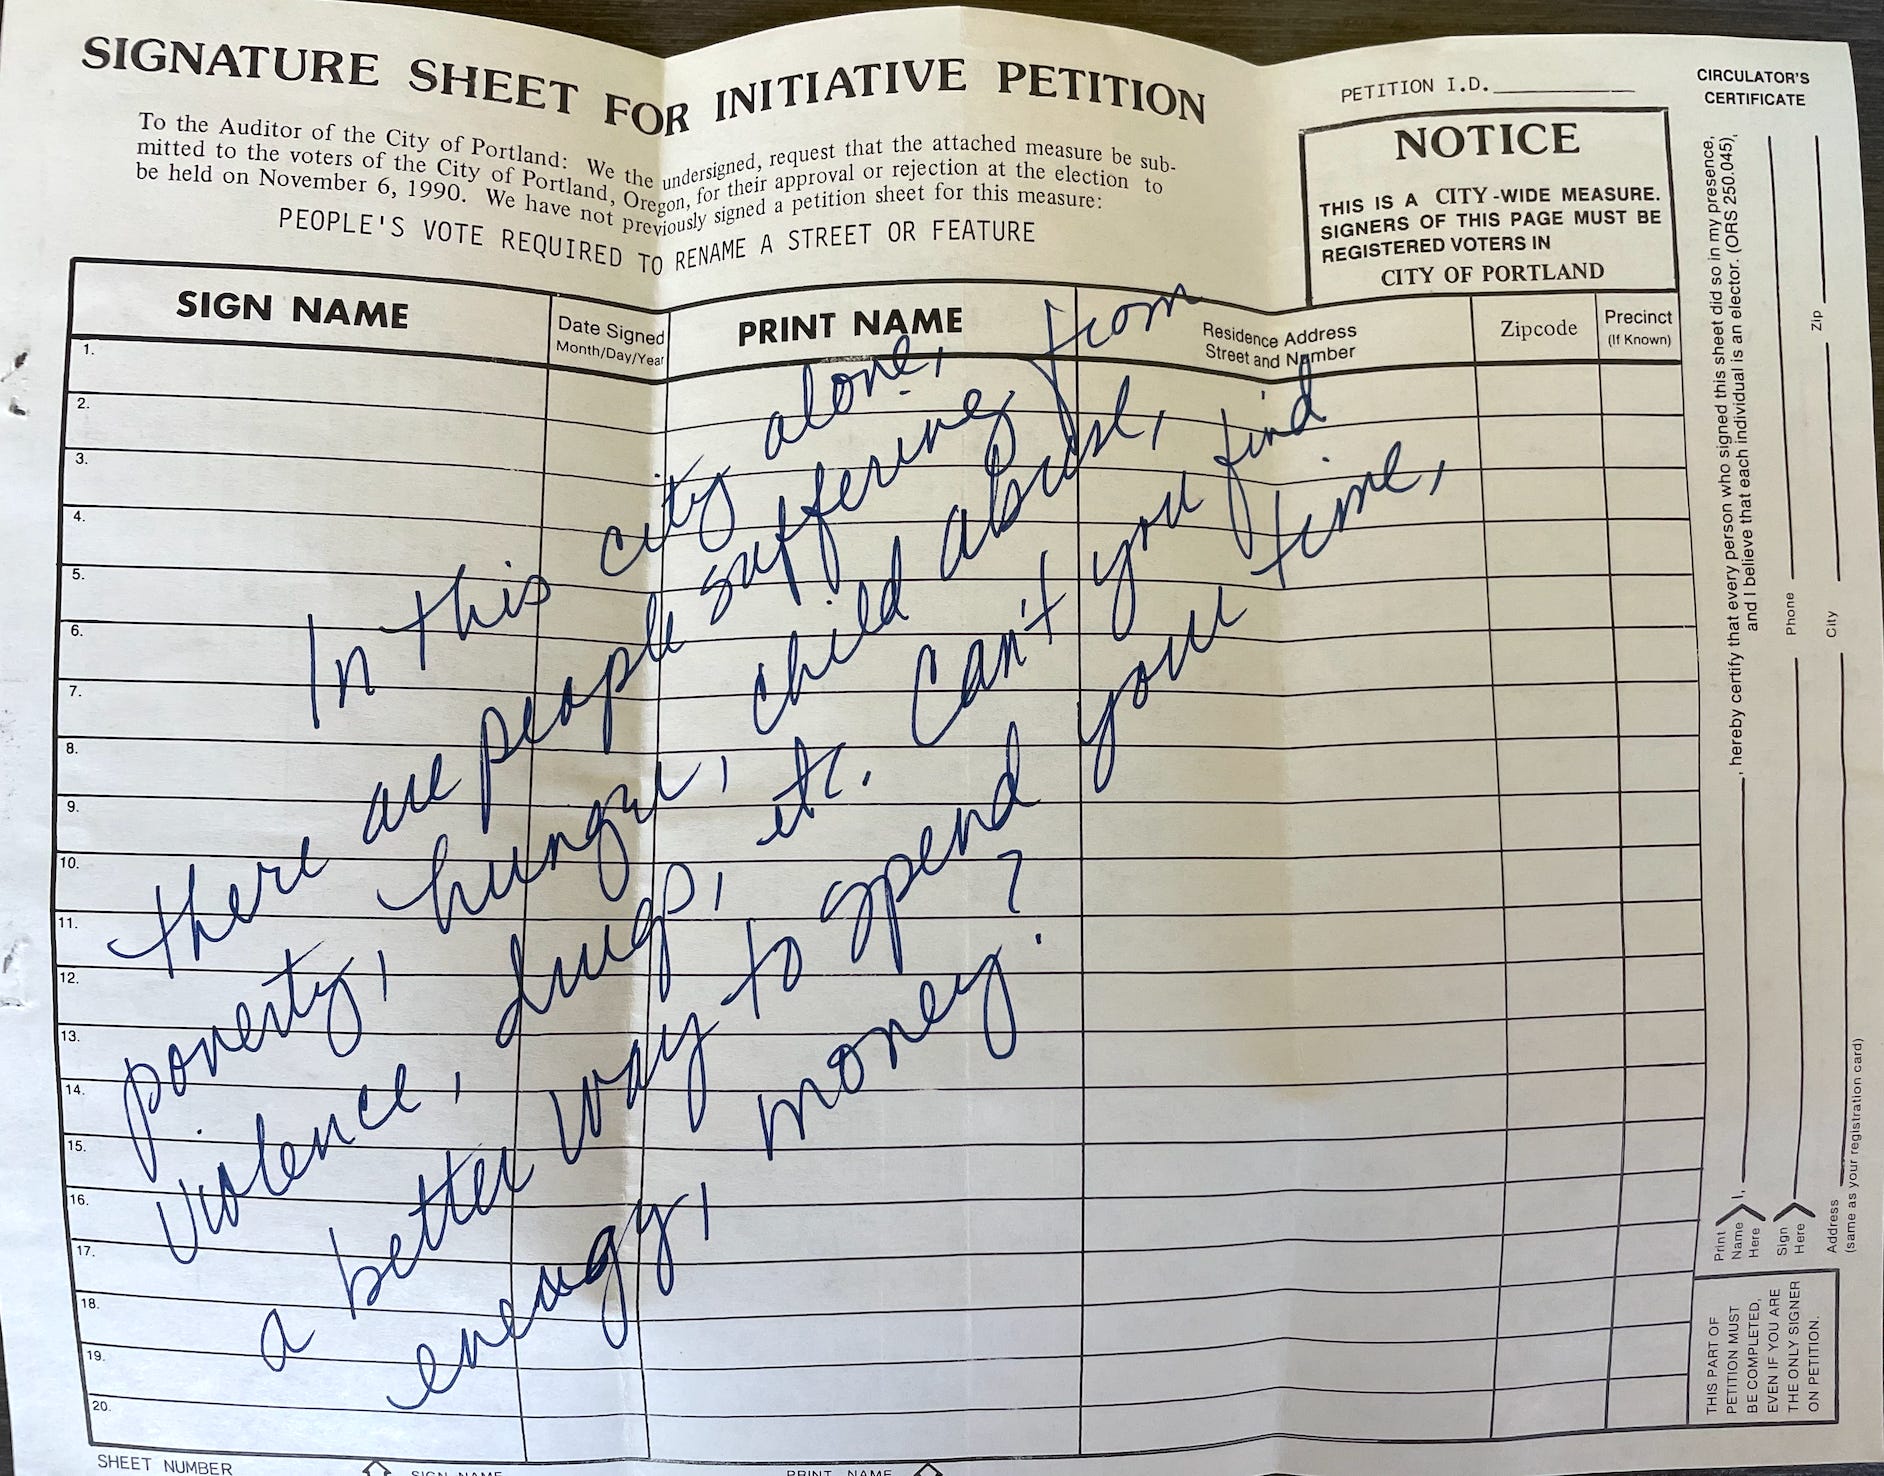 SIGNATURE SHEET FOR INITIATIVE PETITION
To the Auditor of the City of Portland: We the undersigned, request that the attached measure be sub-
mitted to the voters of the City of Portland, Oregon, for their approval or rejection at the election to
be held on November 6, 1990. We have not previously signed a petition sheet for this measure:
PEOPLE'S VOTE REQUIRED TO RENAME A STREET OR FEATURE
PETITION I.D.
NOTICE
THIS IS A CITY-WIDE MEASURE.
SIGNERS OF THIS PAGE MUST BE
REGISTERED VOTERS IN
CITY OF PORTLAND
SIGN NAME
Date Signed
Month/Day/Year
PRINT NAME
Residence Address
Street and Number
Zipcode
Precinct
(If Known)
1.
2.
3.
4.
5.
6.
7.
8.
9.
10.
11.
12.
13.
14.
15.
16.
17.
18.
19.
20.
In this city alone,
there are people suffering from
poverty, hunger, child abuse,
violence, drugs, etc. Can't you find
a better way to spend your time,
energy, money?
SHEET NUMBER
SIGN NAME
PRINT NAME
CIRCULATOR'S
CERTIFICATE
Print
Name
Here
I, , hereby certify that every person who signed this sheet did so in my presence,
and I believe that each individual is an elector. (ORS 250.045)
Sign
Here
Phone
Address
(same as your registration card)
City
Zip
THIS PART OF
PETITION MUST
BE COMPLETED,
EVEN IF YOU ARE
THE ONLY SIGNER
ON PETITION.